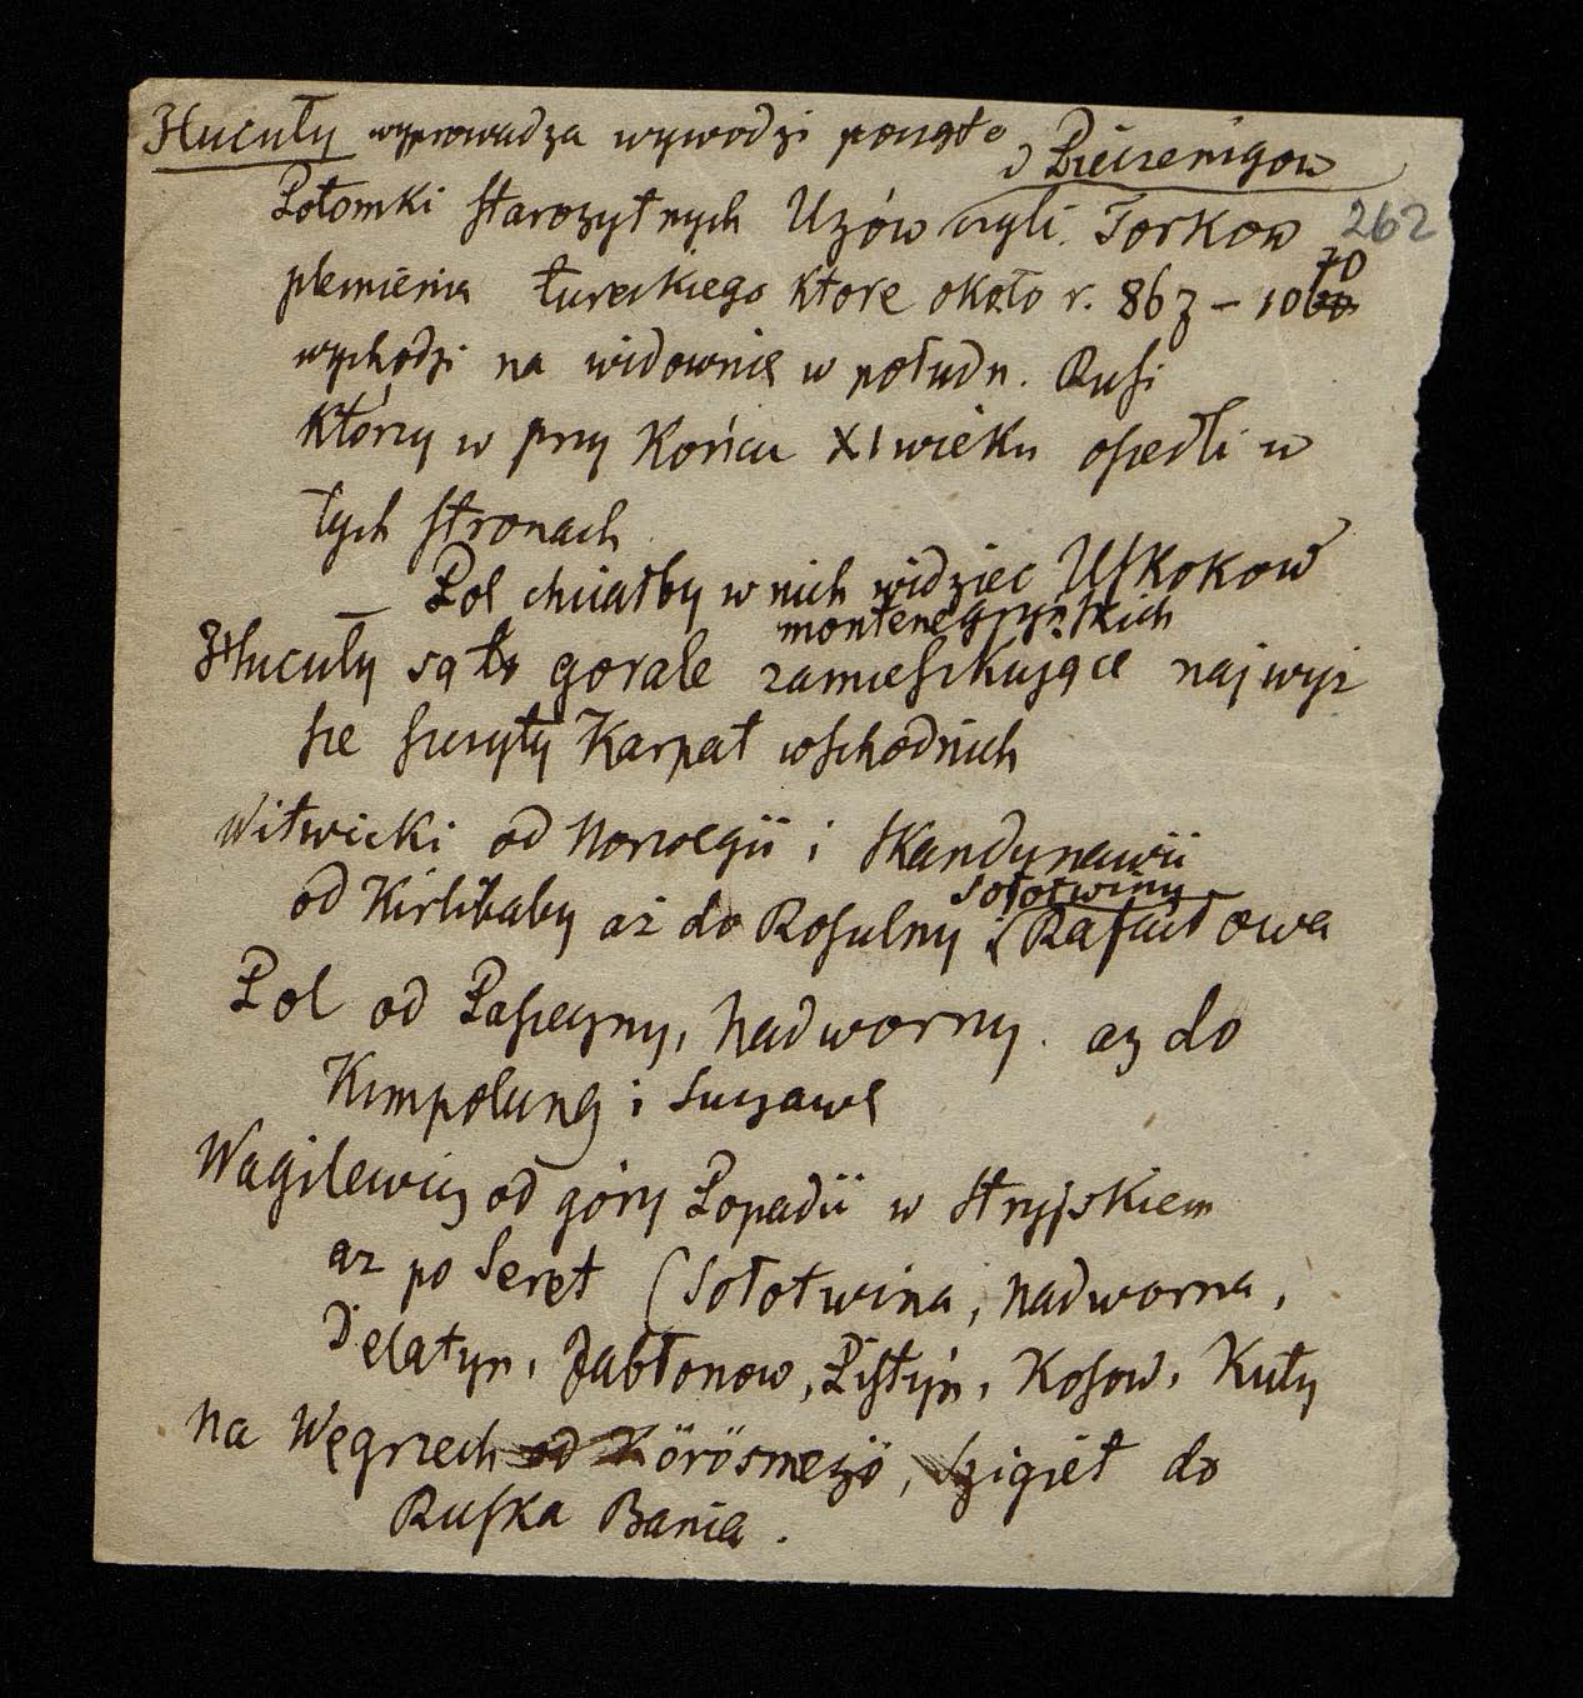 Hucuły wyprowadza wywodzi
Pieczenigow
Potomki starożytnych Uzów czyli Torkow 262
plemienia tureckiego ktore około r. 867 – 1060 70
wychodzi na widownię w połudn. Rusi
którzy w przy końcu XI wieku osiedli w
tych stronach
– Pol chciałby w nich widziec Uskokow
montenegryńskich
Hucuły są to gorale zamieszkujące najwyż
sze szczyty Karpat wschodnich
Witwicki od Norwegii i Skandynawii
Sołotwiny
od Kirlibaby aż do Rosulny i Rafaiłowa
Pol od Pasieczny, Nadworny. az do
Kimpolung i Suczawę
Wagilewicz od góry Łopadii w Stryjskiem
aż po Seret (Sołotwina, Nadworna,
Delatyn, Jabłonow, Pistyń, Kosow, Kuty
na Węgrzech od Körösmezö, Szigiet do
Ruska Bania.